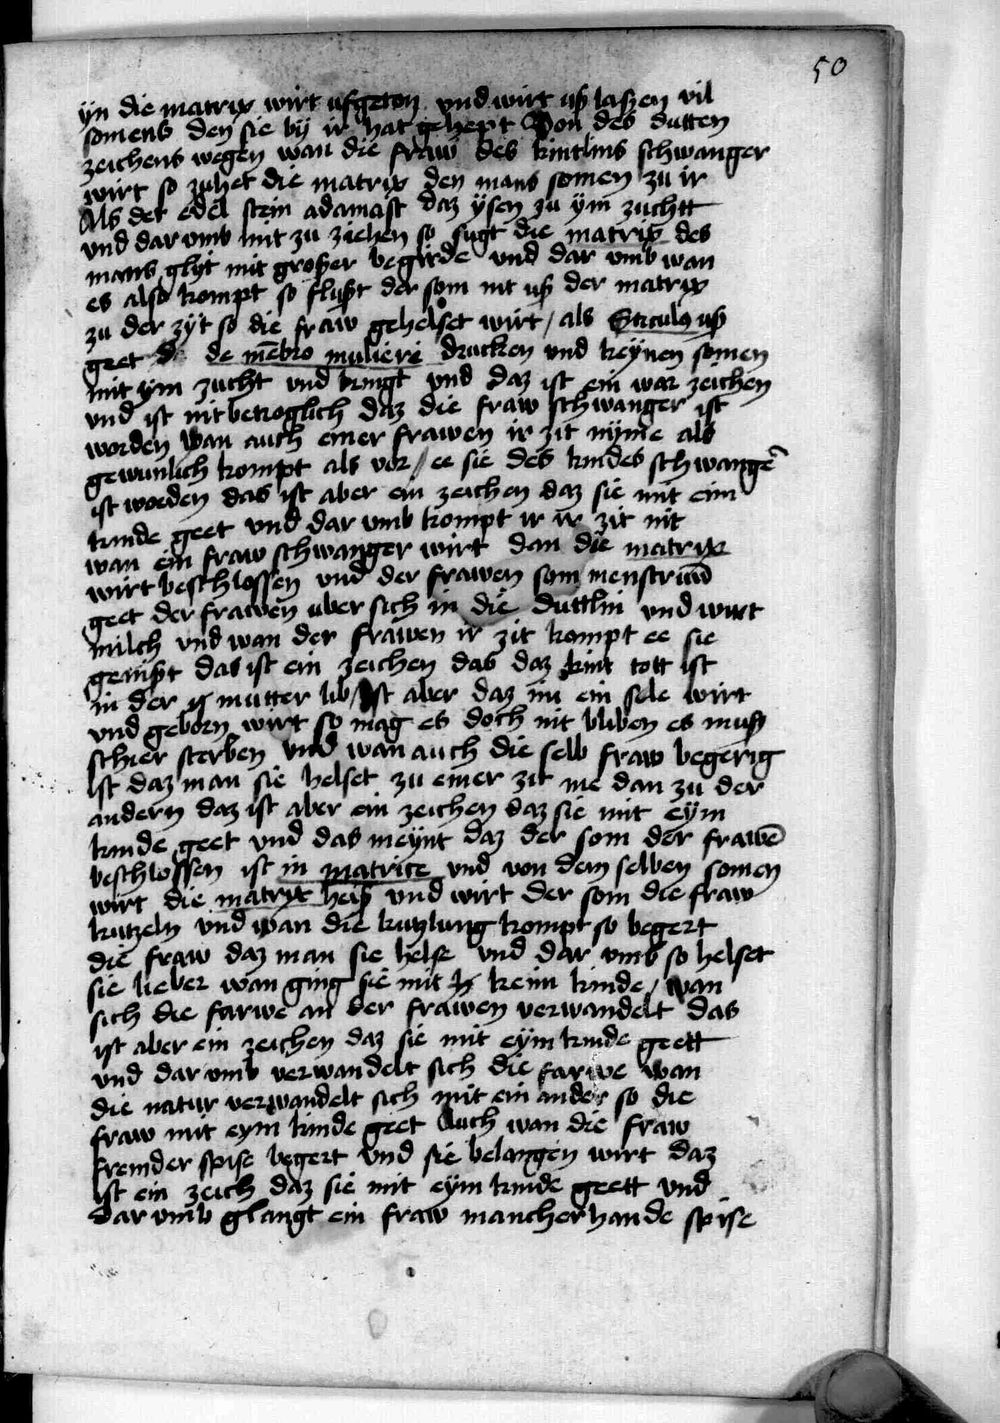 50
yn die matrix wirt ufgeton vnd wirt uß laßen vil
somens den sie by ir hat gehept Von des dutten
zeichens wegen wan die fraw des kintlins schwanger
wirt so zuhet die matrix den mans somen zu ir
Als der edel stein adamast daz ysen zu ym zuchtt
vnd dar vmb mit zu ziehen so sugt die matrix des
mans glyt mit großer begirde vnd dar vmb wan
es also kompt so flußt der som nit uß der matrix
zu der zyt so die fraw gehelset wirt / als uß
geet de membro mulieri drucken vnd keynen somen
mit ym zucht vnd bringt vnd daz ist ein war zeichen
vnd ist nit betroglich daz die fraw schwanger ist
worden wan auch einer frawen ir zit nyme als
gewunlich kompt als vor / ee sie des kindes schwanger
ist worden das ist aber ein zeichen daz sie mit eim
kinde geet vnd dar vmb kompt ir ir zit nit
wan ein fraw schwanger wirt dan die matrix
wirt beschlossen vnd der frawen som menstruū
geet der frawen uber sich in die duttlin vnd wirt
milch vnd wan der frawen ir zit kompt ee sie
genißt das ist ein zeichen das daz kint tott ist
in der mutter lib / Ist aber daz im ein sele wirt
vnd geborn wirt so mag es doch nit bliben es muß
schier sterben vnd wan auch die selb fraw begerig
ist daz man sie helset zu einer zit me dan zu der
andern daz ist aber ein zeichen daz sie mit eym
kinde geet vnd das meynt daz der som der frawē
beschlossen ist in matrice vnd von dem selben somen
wirt die matrix heiß vnd wirt der som die fraw
kutzeln vnd wan die kutzlung kompt so begert
die fraw daz man sie helse vnd dar vmb so helset
sie lieber wan ging sie mit keim kinde / wan
sich die farwe an der frawen verwandelt das
ist aber ein zeichen daz sie mit eym kinde geett
vnd dar vmb verwandelt sich die farwe wan
die natur verwandelt sich mit ein ander so die
fraw mit eym kinde geet Auch wan die fraw
fremder spise begert vnd sie belangen wirt daz
ist ein zeich daz sie mit eym kinde geett vnd
dar vmb glangt ein fraw mancherhande spise